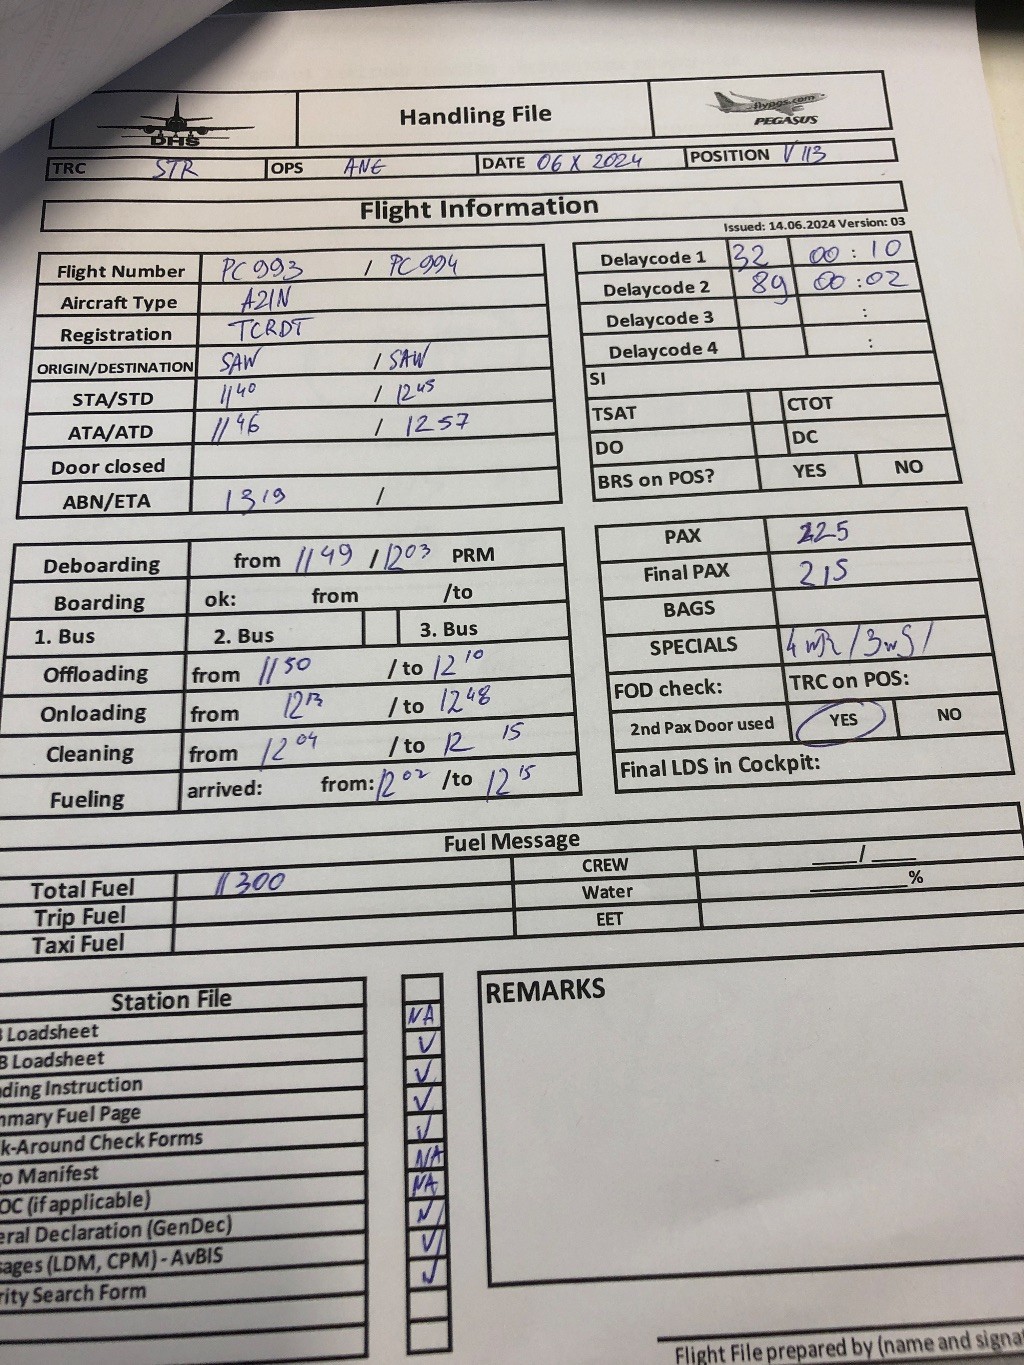 DHS
Handling File
flypgs.com
PEGASUS
TRC STR OPS ANE DATE 06 X 2024 POSITION V 113
Flight Information
Issued: 14.06.2024 Version: 03
Flight Number PC 993 / PC 994
Aircraft Type A21N
Registration TCRDT
ORIGIN/DESTINATION SAW / SAW
STA/STD 1140 / 1245
ATA/ATD 1146 / 1257
Door closed
ABN/ETA 1319 /
Delaycode 1 32 00 : 10
Delaycode 2 89 00 : 02
Delaycode 3 :
Delaycode 4 :
SI
TSAT CTOT
DO DC
BRS on POS? YES NO
Deboarding from 1149 / 1203 PRM
Boarding ok: from /to
1. Bus 2. Bus 3. Bus
Offloading from 1150 / to 1210
Onloading from 1213 / to 1248
Cleaning from 1204 / to 12 15
Fueling arrived: from: 1202 /to 1215
PAX 225
Final PAX 215
BAGS
SPECIALS 4 WR / 3 WS /
FOD check: TRC on POS:
2nd Pax Door used YES NO
Final LDS in Cockpit:
Fuel Message
Total Fuel 11300 CREW ___/___
Trip Fuel Water ______%
Taxi Fuel EET
Station File
Loadsheet NA
B Loadsheet ✓
ding Instruction ✓
mmary Fuel Page ✓
k-Around Check Forms ✓
o Manifest NA
OC (if applicable) NA
eral Declaration (GenDec) ✓
sages (LDM, CPM) - AvBIS ✓
rity Search Form ✓
REMARKS
Flight File prepared by (name and signa